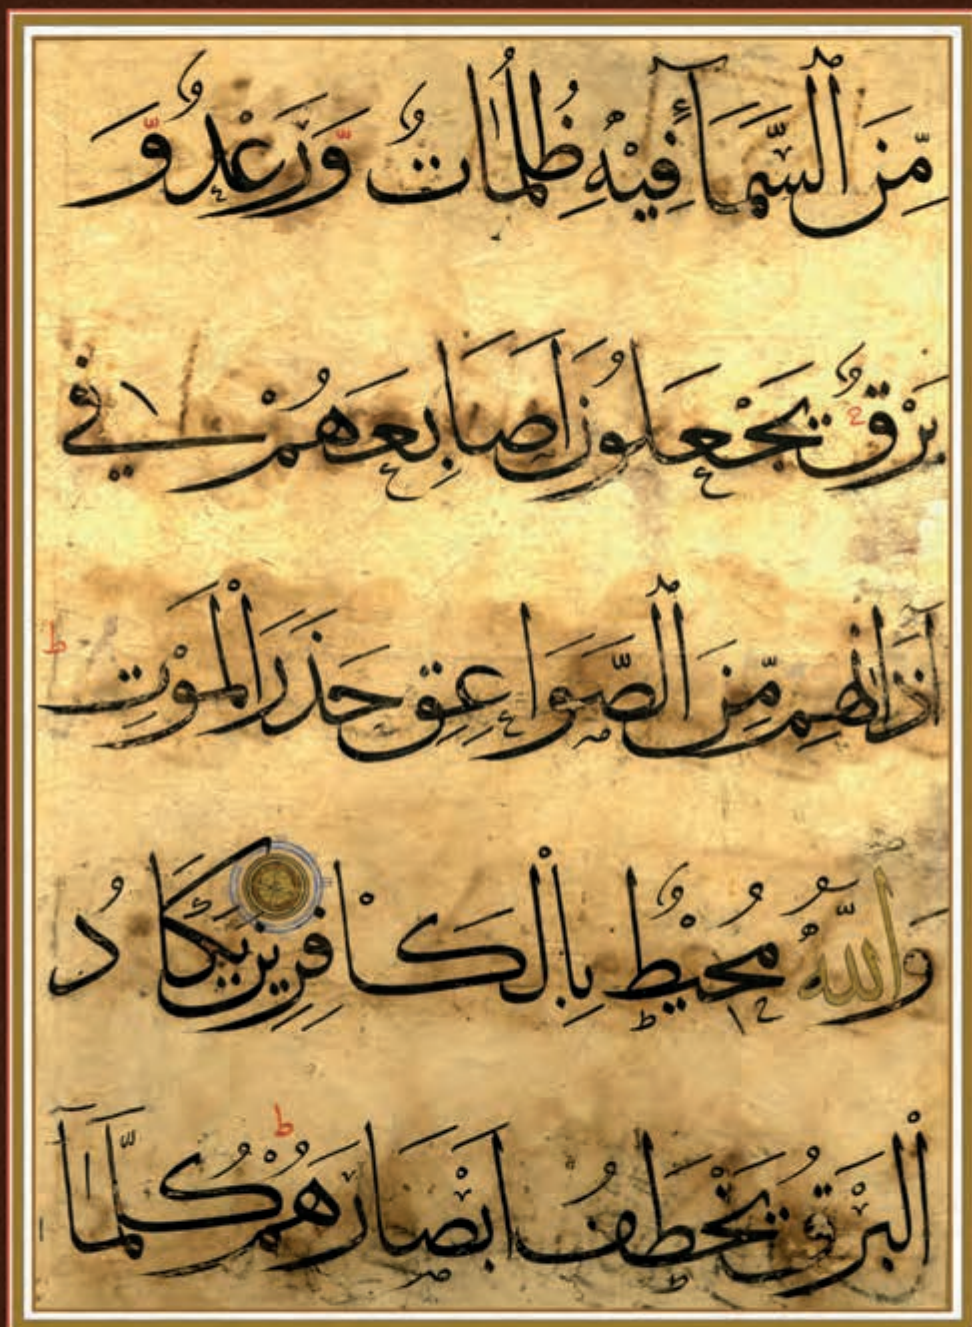 مِّنَ ٱلسَّمَآءِ فِيْهِ ظُلُمَاتٌ وَّرَعْدٌ وَّ
بَرْقٌ يَجْعَلُوْنَ اَصَابِعَهُمْ فِي
اٰذَانِهِمْ مِّنَ ٱلصَّوَاعِقِ حَذَرَ الْمَوْتِ ط
وَاللّٰهُ مُحِيْطٌ بِالْكَافِرِيْنَ يَكَادُ
الْبَرْقُ يَخْطَفُ اَبْصَارَهُمْ ط كُلَّمَآ اَ